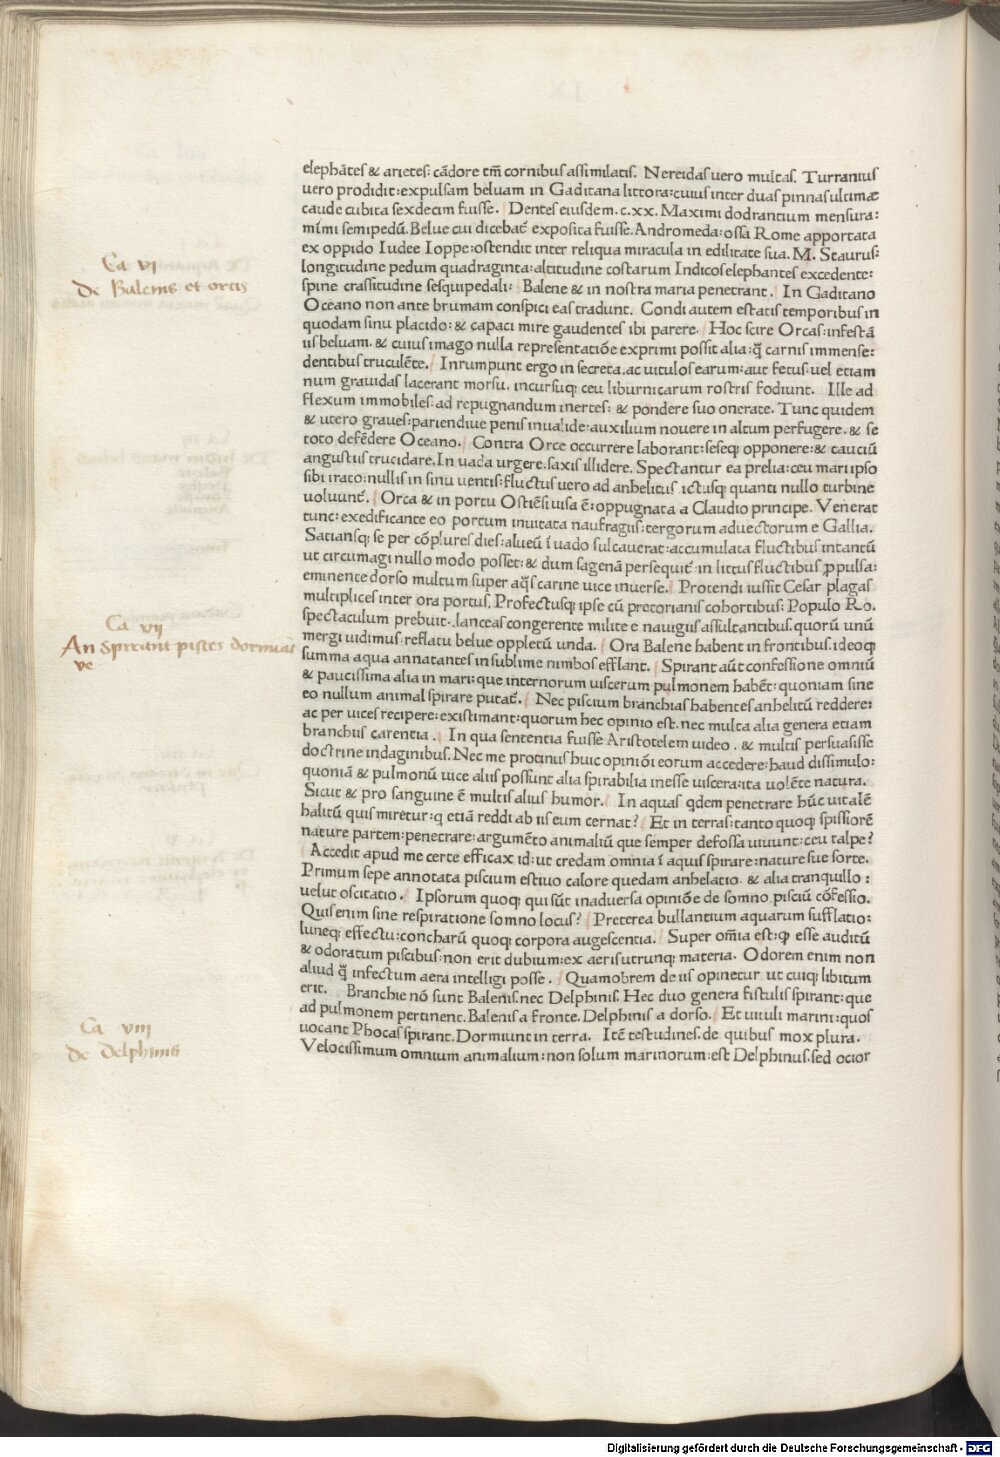 elephãtes & arietes: cãdore tm̃ cornibus assimilatis. Nereidas uero multas. Turranius
uero prodidit: expulsam beluam in Gaditana littora: cuius inter duas pinnas ultimæ
caude cubita sexdecim fuisse. Dentes eiusdem. c.xx. Maximi dodrantium mensura:
mĩmi semipedũ. Belue cui dicebat̃ exposita fuisse. Andromeda: ossa Rome apportata
ex oppido Iudee Ioppe: ostendit inter reliqua miracula in edilitate sua. M. Scaurus:
longitudine pedum quadraginta: altitudine costarum Indicos elephantes excedente:
spine crassitudine sesquipedali: Balene & in nostra maria penetrant. In Gaditano
Oceano non ante brumam conspici eas tradunt. Condi autem estatis temporibus in
quodam sinu placido: & capaci mire gaudentes ibi parere. Hoc scire Orcas: infestã
iis beluam. & cuius imago nulla representatiõe exprimi possit alia: q̃ carnis immense:
dentibus truculẽte. Inrumpunt ergo in secreta. ac uitulos earum: aut fetus: uel etiam
num grauidas lacerant morsu. incursuq; ceu liburnicarum rostris fodiunt. Ille ad
flexum immobiles: ad repugnandum inertes: & pondere suo onerate. Tunc quidem
& utero graues: pariendiue penis inualide: auxilium nouere in altum perfugere. & se
toto defẽdere Oceano. Contra Orce occurrere laborant: seseq; opponere: & cauciũ
angustiis trucidare. In uada urgere. saxis illidere. Spectantur ea prelia: ceu mari ipso
sibi irato: nullis in sinu uentis: fluctus uero ad anhelitus ictusq; quanti nullo turbine
uoluunt̃. Orca & in portu Ostiẽsi uisa ẽ: oppugnata a Claudio principe. Venerat
tunc: exedificante eo portum inuitata naufragiis: tergorum aduectorum e Gallia.
Satiansq; se per cõplures dies: alueũ ĩ uado sulcauerat: accumulata fluctibus intantũ
ut circumagi nullo modo posset: & dum saginã persequit̃ in littus fluctibus ꝓpulsa:
eminente dorso multum super aq̃s carine uice inuerse. Pretendi iussit Cesar plagas
multiplices inter ora portus. Profectusq; ipse cũ pretorianis cohortibus: Populo Ro.
spectaculum prebuit. lanceas congerente milite e nauigiis assultantibus. quorũ unũ
mergi uidimus: reflatu belue oppletũ unda. Ora Balene habent in frontibus. ideoq;
summa aqua annatantes in sublime nimbos efflant. Spirant aũt confessione omniũ
& paucissima alia in mari: que internorum uiscerum pulmonem habẽt: quoniam sine
eo nullum animal spirare putat̃. Nec piscium branchias habentes anhelitũ reddere:
ac per uices recipere: existimant: quorum hec opinio est. nec multa alia genera etiam
branchiis carentia. In qua sententia fuisse Aristotelem uideo. & multis persuasisse
doctrine indaginibus. Nec me protinus huic opiniõi eorum accedere: haud dissimulo:
quoniã & pulmonũ uice aliis possunt alia spirabilia inesse uiscera: ita uolẽte natura.
Sicut & pro sanguine ẽ multis alius humor. In aquas q̃dem penetrare hũc uitalẽ
halitũ quis miretur: q etiã reddi ab iis eum cernat? Et in terras: tanto quoq; spissiorẽ
nature partem: penetrare: argumẽto animaliũ que semper defossa uiuunt: ceu talpe?
Accedit apud me certe efficax id: ut credam omnia ĩ aquis spirare: nature sue sorte.
Primum sepe annotata piscium estiuo calore quedam anhelatio. & alia tranquillo:
uelut oscitatio. Ipsorum quoq; qui sũt inaduersa opiniõe de somno pisciũ cõfessio.
Quis enim sine respiratione somno locus? Preterea bullantium aquarum sufflatio:
luneq; effectu: concharũ quoq; corpora augescentia. Super om̃ia est: ꝙ esse auditũ
& odoratum piscibus: non erit dubium: ex aeris utrunq; materia. Odorem enim non
aliud q̃ infectum aera intelligi posse. Quamobrem de iis opinetur ut cuiq; libitum
erit. Branchie nõ sunt Balenis. nec Delphinis. Hec duo genera fistulis spirant: que
ad pulmonem pertinent. Balenis a fronte. Delphinis a dorso. Et uituli marini: quos
uocant Phocas spirant. Dormiunt in terra. Itẽ testudines. de quibus mox plura.
Velocissimum omnium animalium: non solum marinorum: est Delphinus. sed ocior
Ca vi
de Balenis et orcis
Ca vij
An Spirant pisces dormiãt
ve
Ca viij
de Delphinis
Digitalisierung gefördert durch die Deutsche Forschungsgemeinschaft - DFG